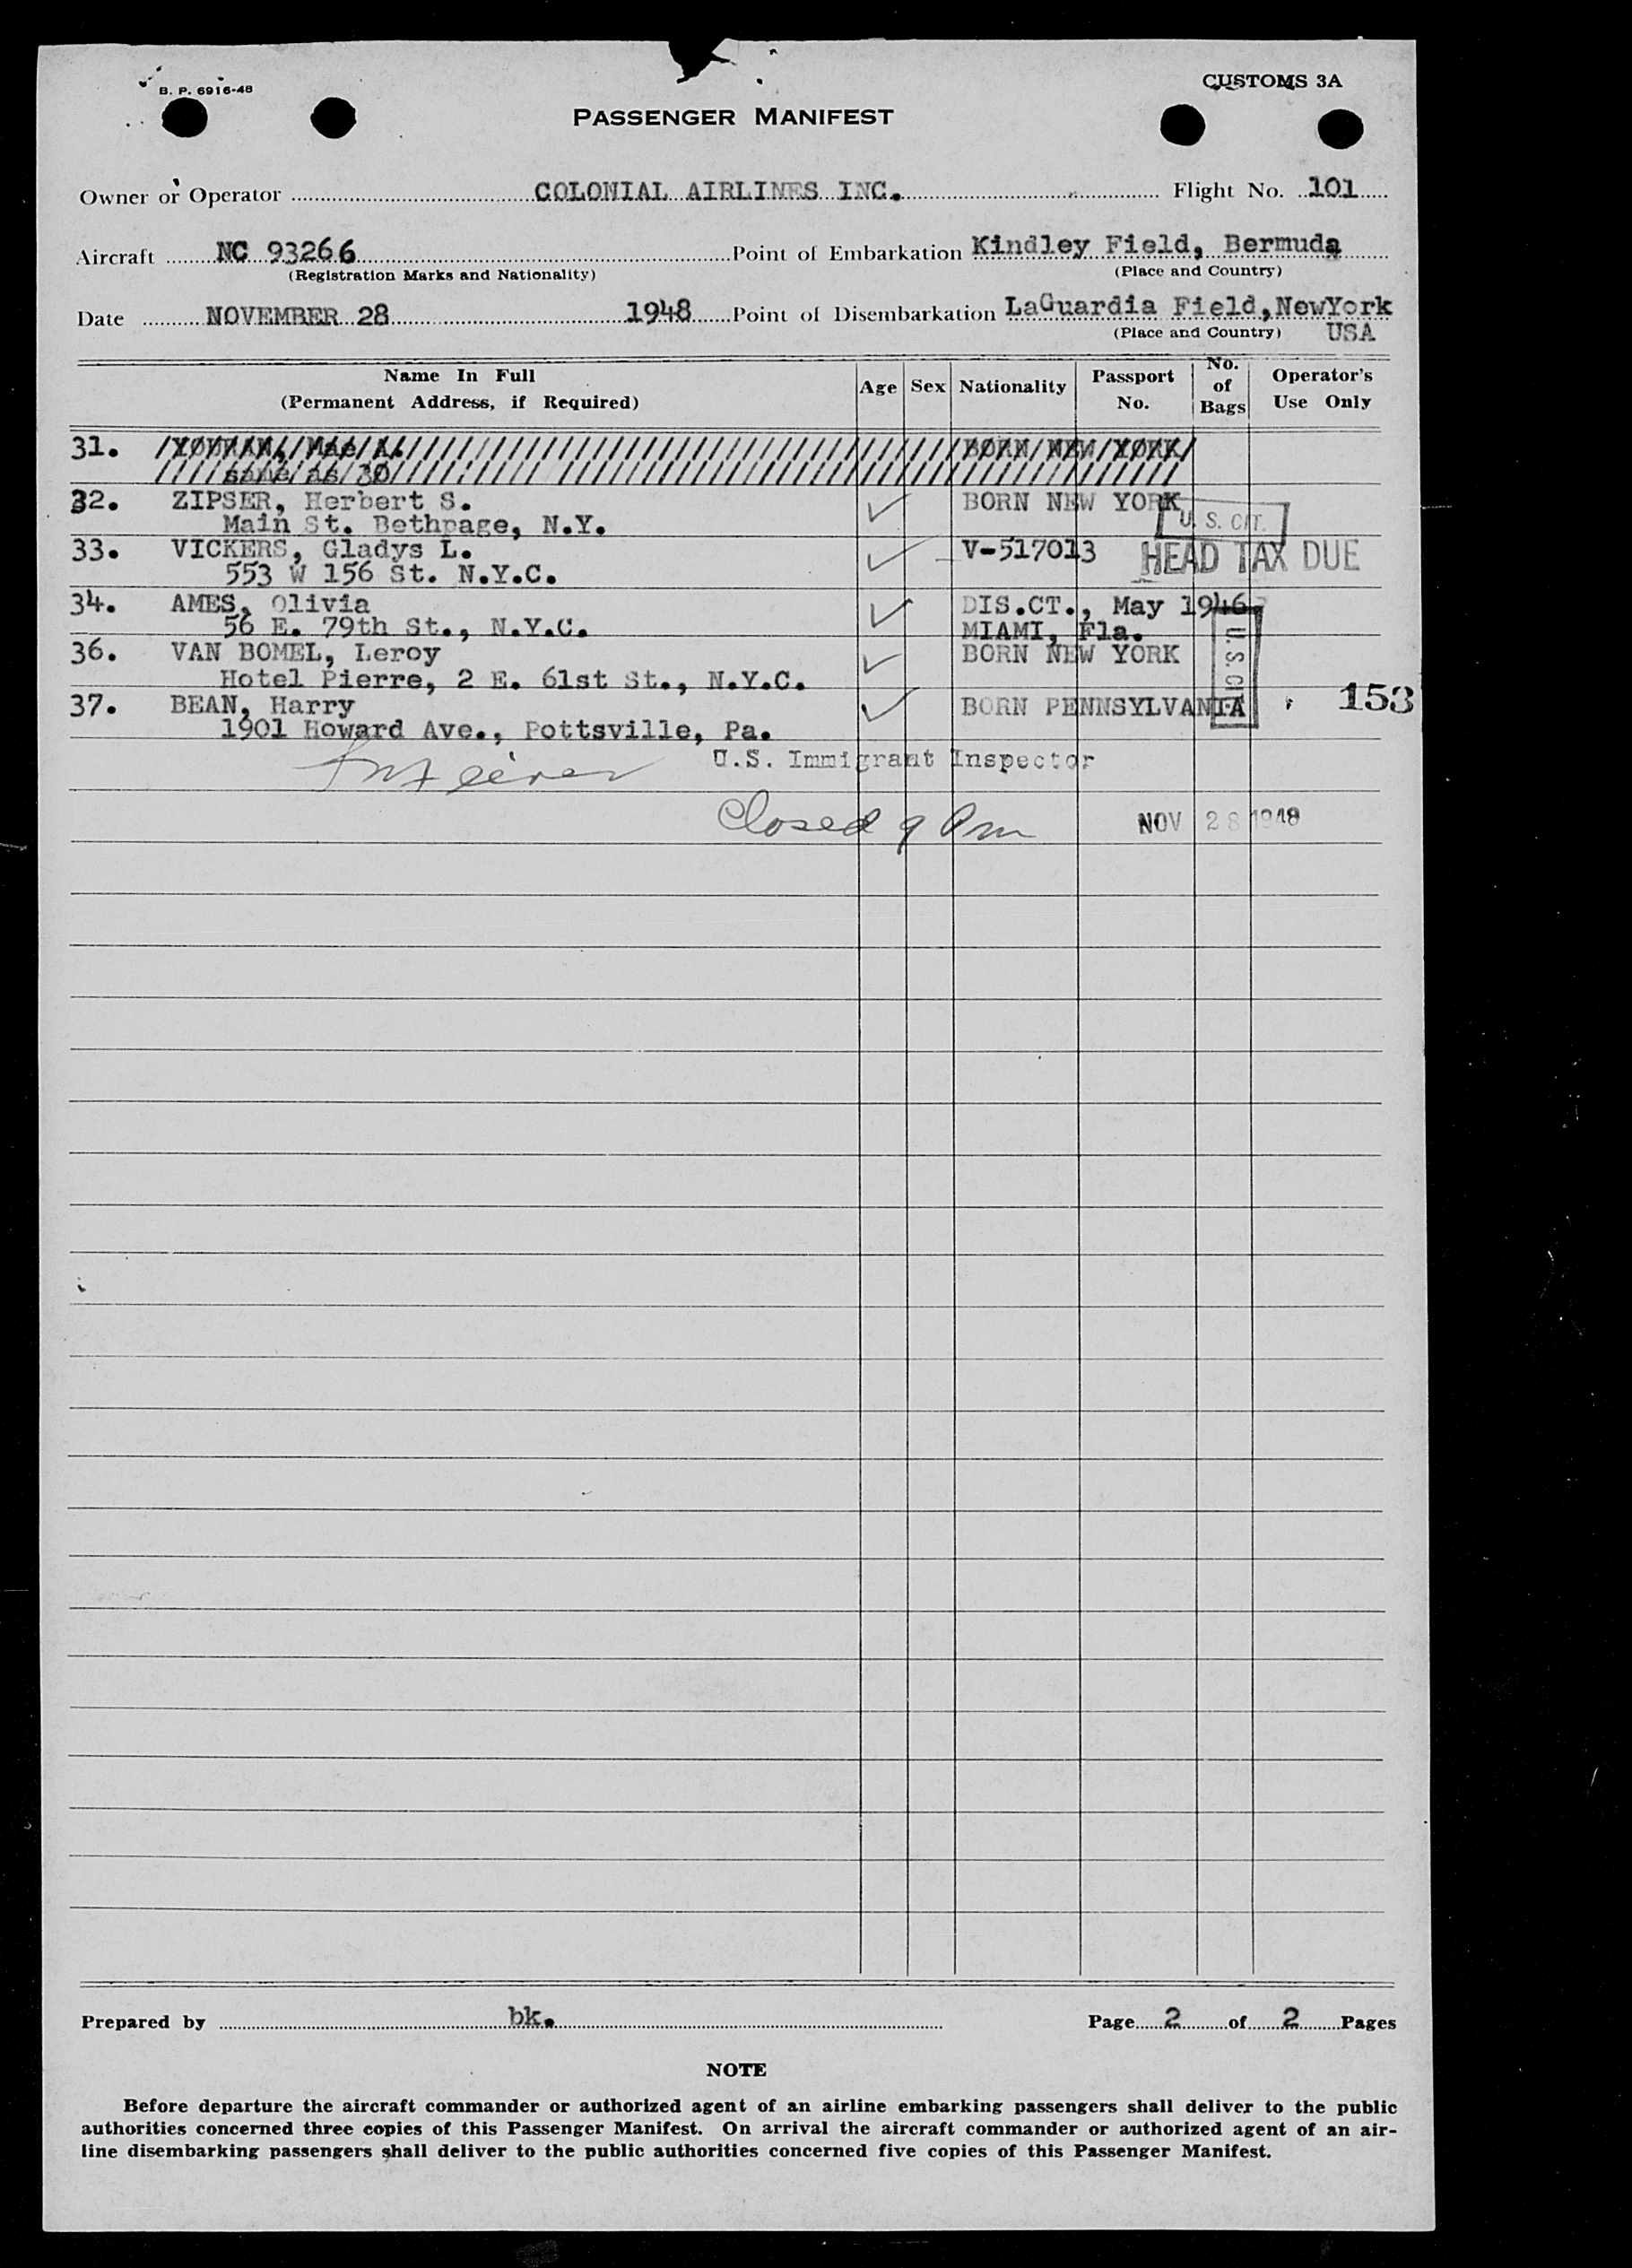 B. P. 6916-48
CUSTOMS 3A
PASSENGER MANIFEST
Owner or Operator COLONIAL AIRLINES INC. Flight No. 101
Aircraft NC 93266 Point of Embarkation Kindley Field, Bermuda
(Registration Marks and Nationality) (Place and Country)
Date NOVEMBER 28 1948 Point of Disembarkation LaGuardia Field, NewYork
(Place and Country) USA
Name In Full (Permanent Address, if Required) Age Sex Nationality Passport No. No. of Bags Operator's Use Only
31. Mae A. BORN NEW YORK
same as 30
32. ZIPSER, Herbert S. BORN NEW YORK
Main St. Bethpage, N.Y. U. S. CIT.
33. VICKERS, Gladys L. V-517013 HEAD TAX DUE
553 W 156 St. N.Y.C.
34. AMES, Olivia DIS.CT., May 1946
56 E. 79th St., N.Y.C. MIAMI, Fla.
36. VAN BOMEL, Leroy BORN NEW YORK U.S CIT
Hotel Pierre, 2 E. 61st St., N.Y.C.
37. BEAN, Harry BORN PENNSYLVANIA 153
1901 Howard Ave., Pottsville, Pa.
U.S. Immigrant Inspector
Closed 9 Pm NOV 28 1948
Prepared by bk. Page 2 of 2 Pages
NOTE
Before departure the aircraft commander or authorized agent of an airline embarking passengers shall deliver to the public
authorities concerned three copies of this Passenger Manifest. On arrival the aircraft commander or authorized agent of an air-
line disembarking passengers shall deliver to the public authorities concerned five copies of this Passenger Manifest.